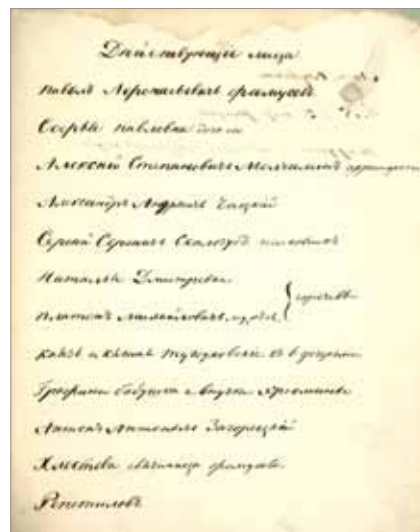 Дѣйствующіе лица
Павелъ Афонасьевичь Фамусовъ
Софья Павловна дочь
Алексѣй Степановичь Молчалинъ
Александръ Андреичь Чацкой
Сергѣй Сергѣичь Скалозубъ полковникъ
Наталья Дмитревна
Платонъ Михайловичь мужъ } Горичевы
Князь и Княгиня Тугоуховскіе съ 6 дочерьми
Графини бабушка и внучка Хрюмины
Антонъ Антонычь Загорецкой
Хлестова свояченица Фамусова
Репетиловъ